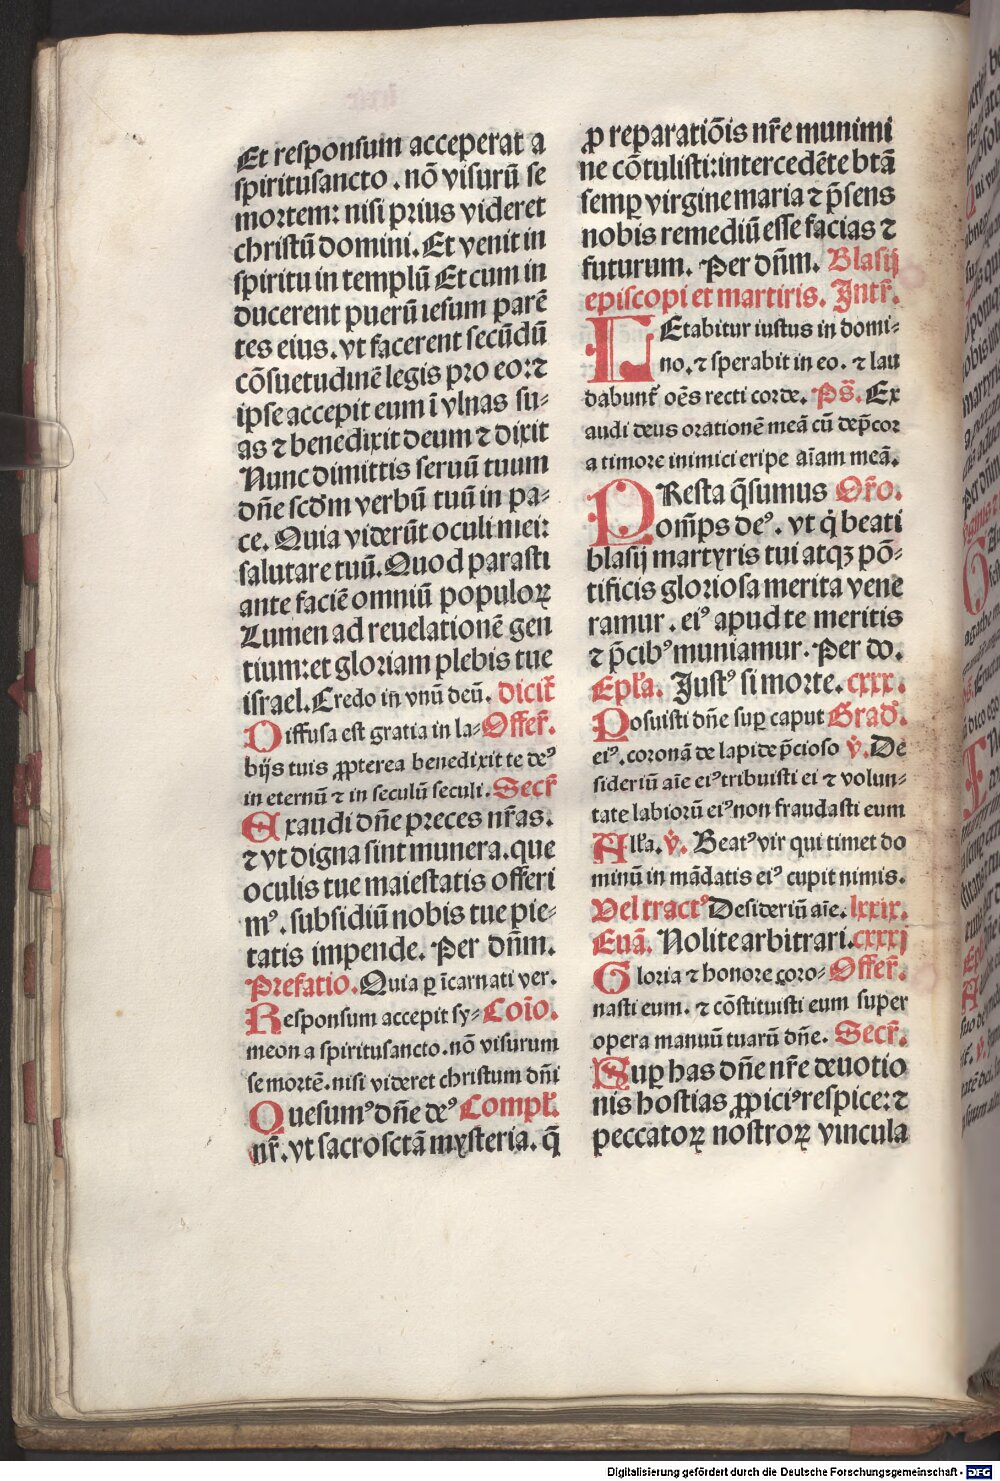 Et responsum acceperat a
spiritusancto . nõ visurũ se
mortem: nisi prius videret
christũ domini. Et venit in
spiritu in templũ Et cum in
ducerent puerũ iesum parẽ
tes eius. vt facerent secũdũ
cõsuetudinẽ legis pro eo: ⁊
ipse accepit eum ĩ vlnas su⸗
as ⁊ benedixit deum ⁊ dixit
Nunc dimittis seruũ tuum
dñe scdm̃ verbũ tuũ in pa⸗
ce. Quia viderũt oculi mei:
salutare tuũ. Quod parasti
ante faciẽ omniũ populoꝝ
Lumen ad reuelationẽ gen
tium: et gloriam plebis tue
israel. Credo in vnũ deũ. dicit̃
Diffusa est gratia in la⸗ Offer̃.
bijs tuis ꝓpterea benedixit te deꝰ
in eternũ ⁊ in seculũ seculi. Secr̃
Exaudi dñe preces nr̃as.
⁊ vt digna sint munera. que
oculis tue maiestatis offeri
mꝰ. subsidiũ nobis tue pie⸗
tatis impende. Per dñm.
Prefatio. Quia ꝑ ĩcarnati ver.
Responsum accepit sy⸗ Coĩo.
meon a spiritusancto. nõ visurum
se mortẽ. nisi videret christum dñi
Quesumꝰ dñe deꝰ Compl̃.
nr̃. vt sacrosctã mysteria. q̃
ꝓ reparatiõis nr̃e munimi
ne cõtulisti: intercedẽte btã
semꝑ virgine maria ⁊ p̃sens
nobis remediũ esse facias ⁊
futurum. Per dñm. Blasij
episcopi et martiris. Intr̃.
LEtabitur iustus in domi⸗
no. ⁊ sperabit in eo. ⁊ lau
dabunt̃ oẽs recti corde. Ps̃. Ex
audi deus orationẽ meã cũ dep̃cor
a timore inimici eripe aĩam meã.
PResta q̃sumus Or̃o.
om̃ps deꝰ. vt q̇ beati
blasij martyris tui atqꝫ põ⸗
tificis gloriosa merita vene
ramur. eiꝰ apud te meritis
⁊ p̃cibꝰ muniamur. Per do.
Epl̃a. Justꝰ si morte. cxxx.
Posuisti dñe suꝑ caput Grad̃.
eiꝰ. coronã de lapide p̃cioso v̇. De
sideriũ aĩe eiꝰ tribuisti ei ⁊ volun⸗
tate labiorũ eiꝰ non fraudasti eum
All̃a. v̇. Beatꝰ vir qui timet do
minũ in mãdatis eiꝰ cupit nimis.
Vel tractꝰ Desideriũ aĩe. lxxix.
Euã. Nolite arbitrari. cxxxj
Gloria ⁊ honore coro⸗ Offer̃.
nasti eum. ⁊ cõstituisti eum super
opera manuũ tuarũ dñe. Secr̃.
Suꝑ has dñe nr̃e deuotio
nis hostias ꝓpiciꝰ respice: ⁊
peccatoꝝ nostroꝝ vincula
Digitalisierung gefördert durch die Deutsche Forschungsgemeinschaft - DFG